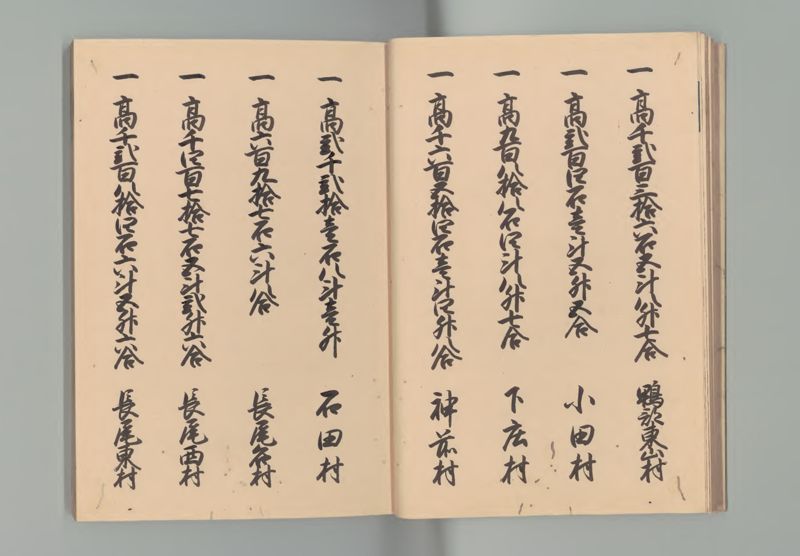 一高千弐百三拾六石五斗八升七合 鴨部東山村
一高弐百四石壱斗五升五合 小田村
一高九百八拾八石四斗八升七合 下庄村
一高千六百五拾四石壱斗四升八合 神前村
一高弐千弐拾壱石八斗壱升 石田村
一高六百九拾七石六斗八合 長尾名村
一高千四百七拾七石五斗弐升六合 長尾西村
一高千弐百八拾四石六斗五升六合 長尾東村